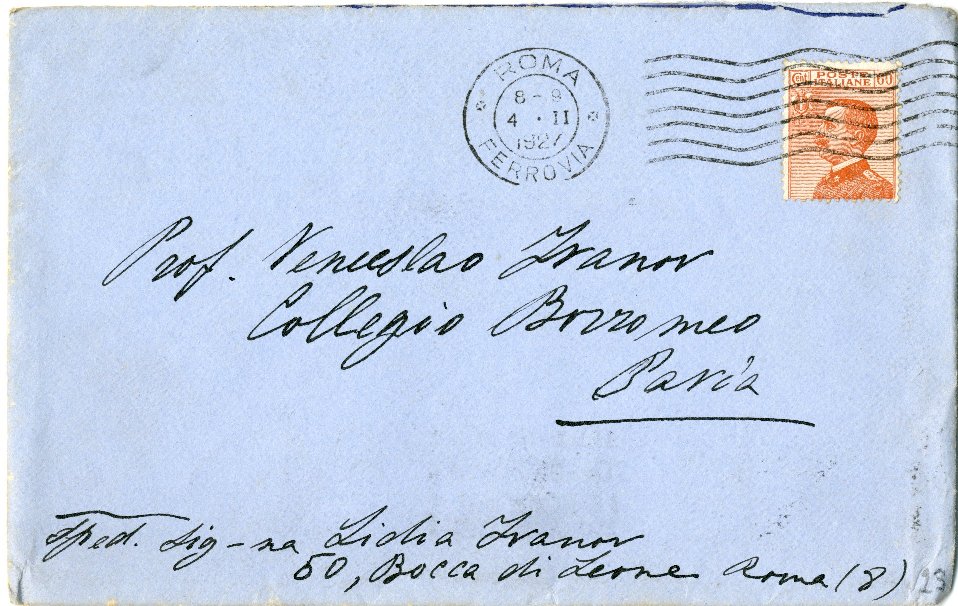 ROMA
8-9
4 · II
1927
FERROVIA
Cent. POSTE 60
ITALIANE
Prof. Venceslao Ivanov
Collegio Borromeo
Pavia
Sped. Sig-na Lidia Ivanov
50, Bocca di Leone Roma (8)
23